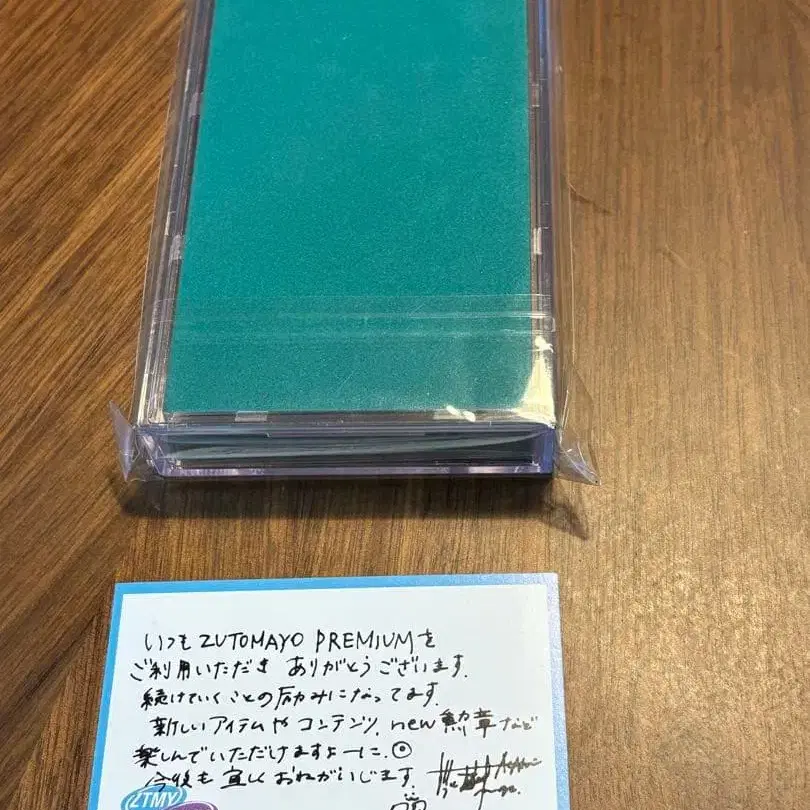 いつも ZUTOMAYO PREMIUMを
ご利用いただき ありがとうございます.
続けていくことの励みになってます.
新しいアイテムや コンテンツ, new 勲章など
楽しんでいただけますよーに.
今後も 宜しくおねがいします
ZTMY